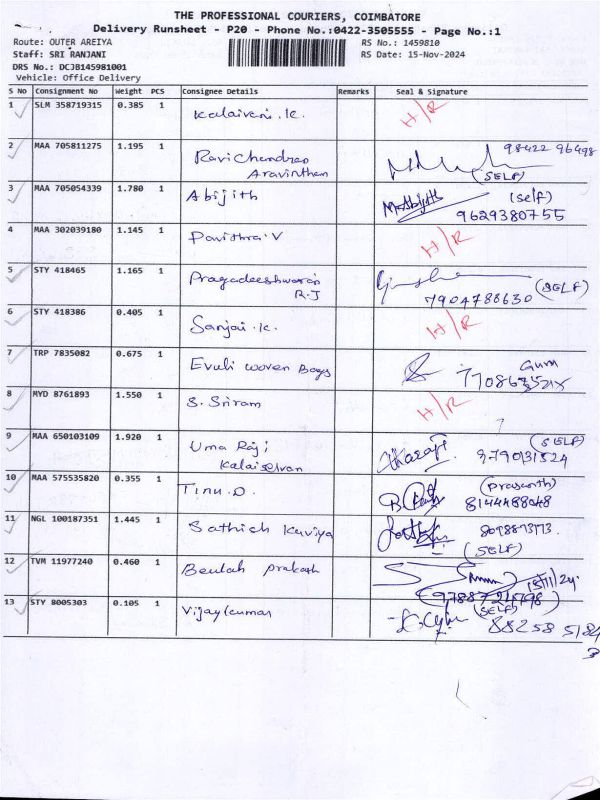 THE PROFESSIONAL COURIERS, COIMBATORE
Delivery Runsheet - P20 - Phone No.:0422-3505555 - Page No.:1
Route: OUTER AREIYA RS No.: 1459810
Staff: SRI RANJANI RS Date: 15-Nov-2024
DRS No.: DCJB145981001
Vehicle: Office Delivery
S No Consignment No Weight PCS Consignee Details Remarks Seal & Signature
1 SLM 358719315 0.385 1 Kalaivani.K. H/R
2 MAA 705811275 1.195 1 Ravi Chandran 98422 96498
Aravinthan (SELF)
3 MAA 705054339 1.780 1 Abijith (self)
9629380755
4 MAA 302039180 1.145 1 Pavithra V H/R
5 STY 418465 1.165 1 Pragadeeshwaran (SELF)
R.J 7904788630
6 STY 418386 0.405 1 Sanjai.K. H/R
7 TRP 7835082 0.675 1 Evuli woven Bags
8 MYD 8761893 1.550 1 S. Sriram H/R
9 MAA 650103109 1.920 1 Uma Raji (SELF)
Kalaiselvan 9790131524
10 MAA 575535820 0.355 1 Tinu.D. (Prasanth)
8144488048
11 NGL 100187351 1.445 1 Sathish Kaviya
(SELF)
12 TVM 11977240 0.460 1 Beulah prakash 15/11/24
13 STY 8005303 0.105 1 Vijaykumar (SELF)
88258 5184
3